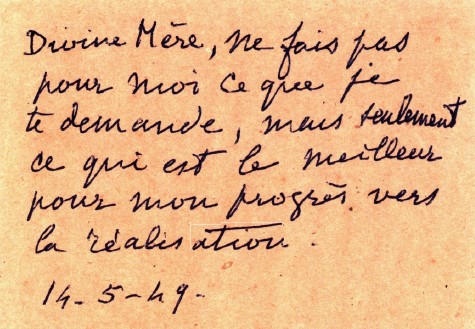 Divine Mère, ne fais pas
pour moi ce que je
te demande, mais seulement
ce qui est le meilleur
pour mon progrès vers
la réalisation.
14-5-49-